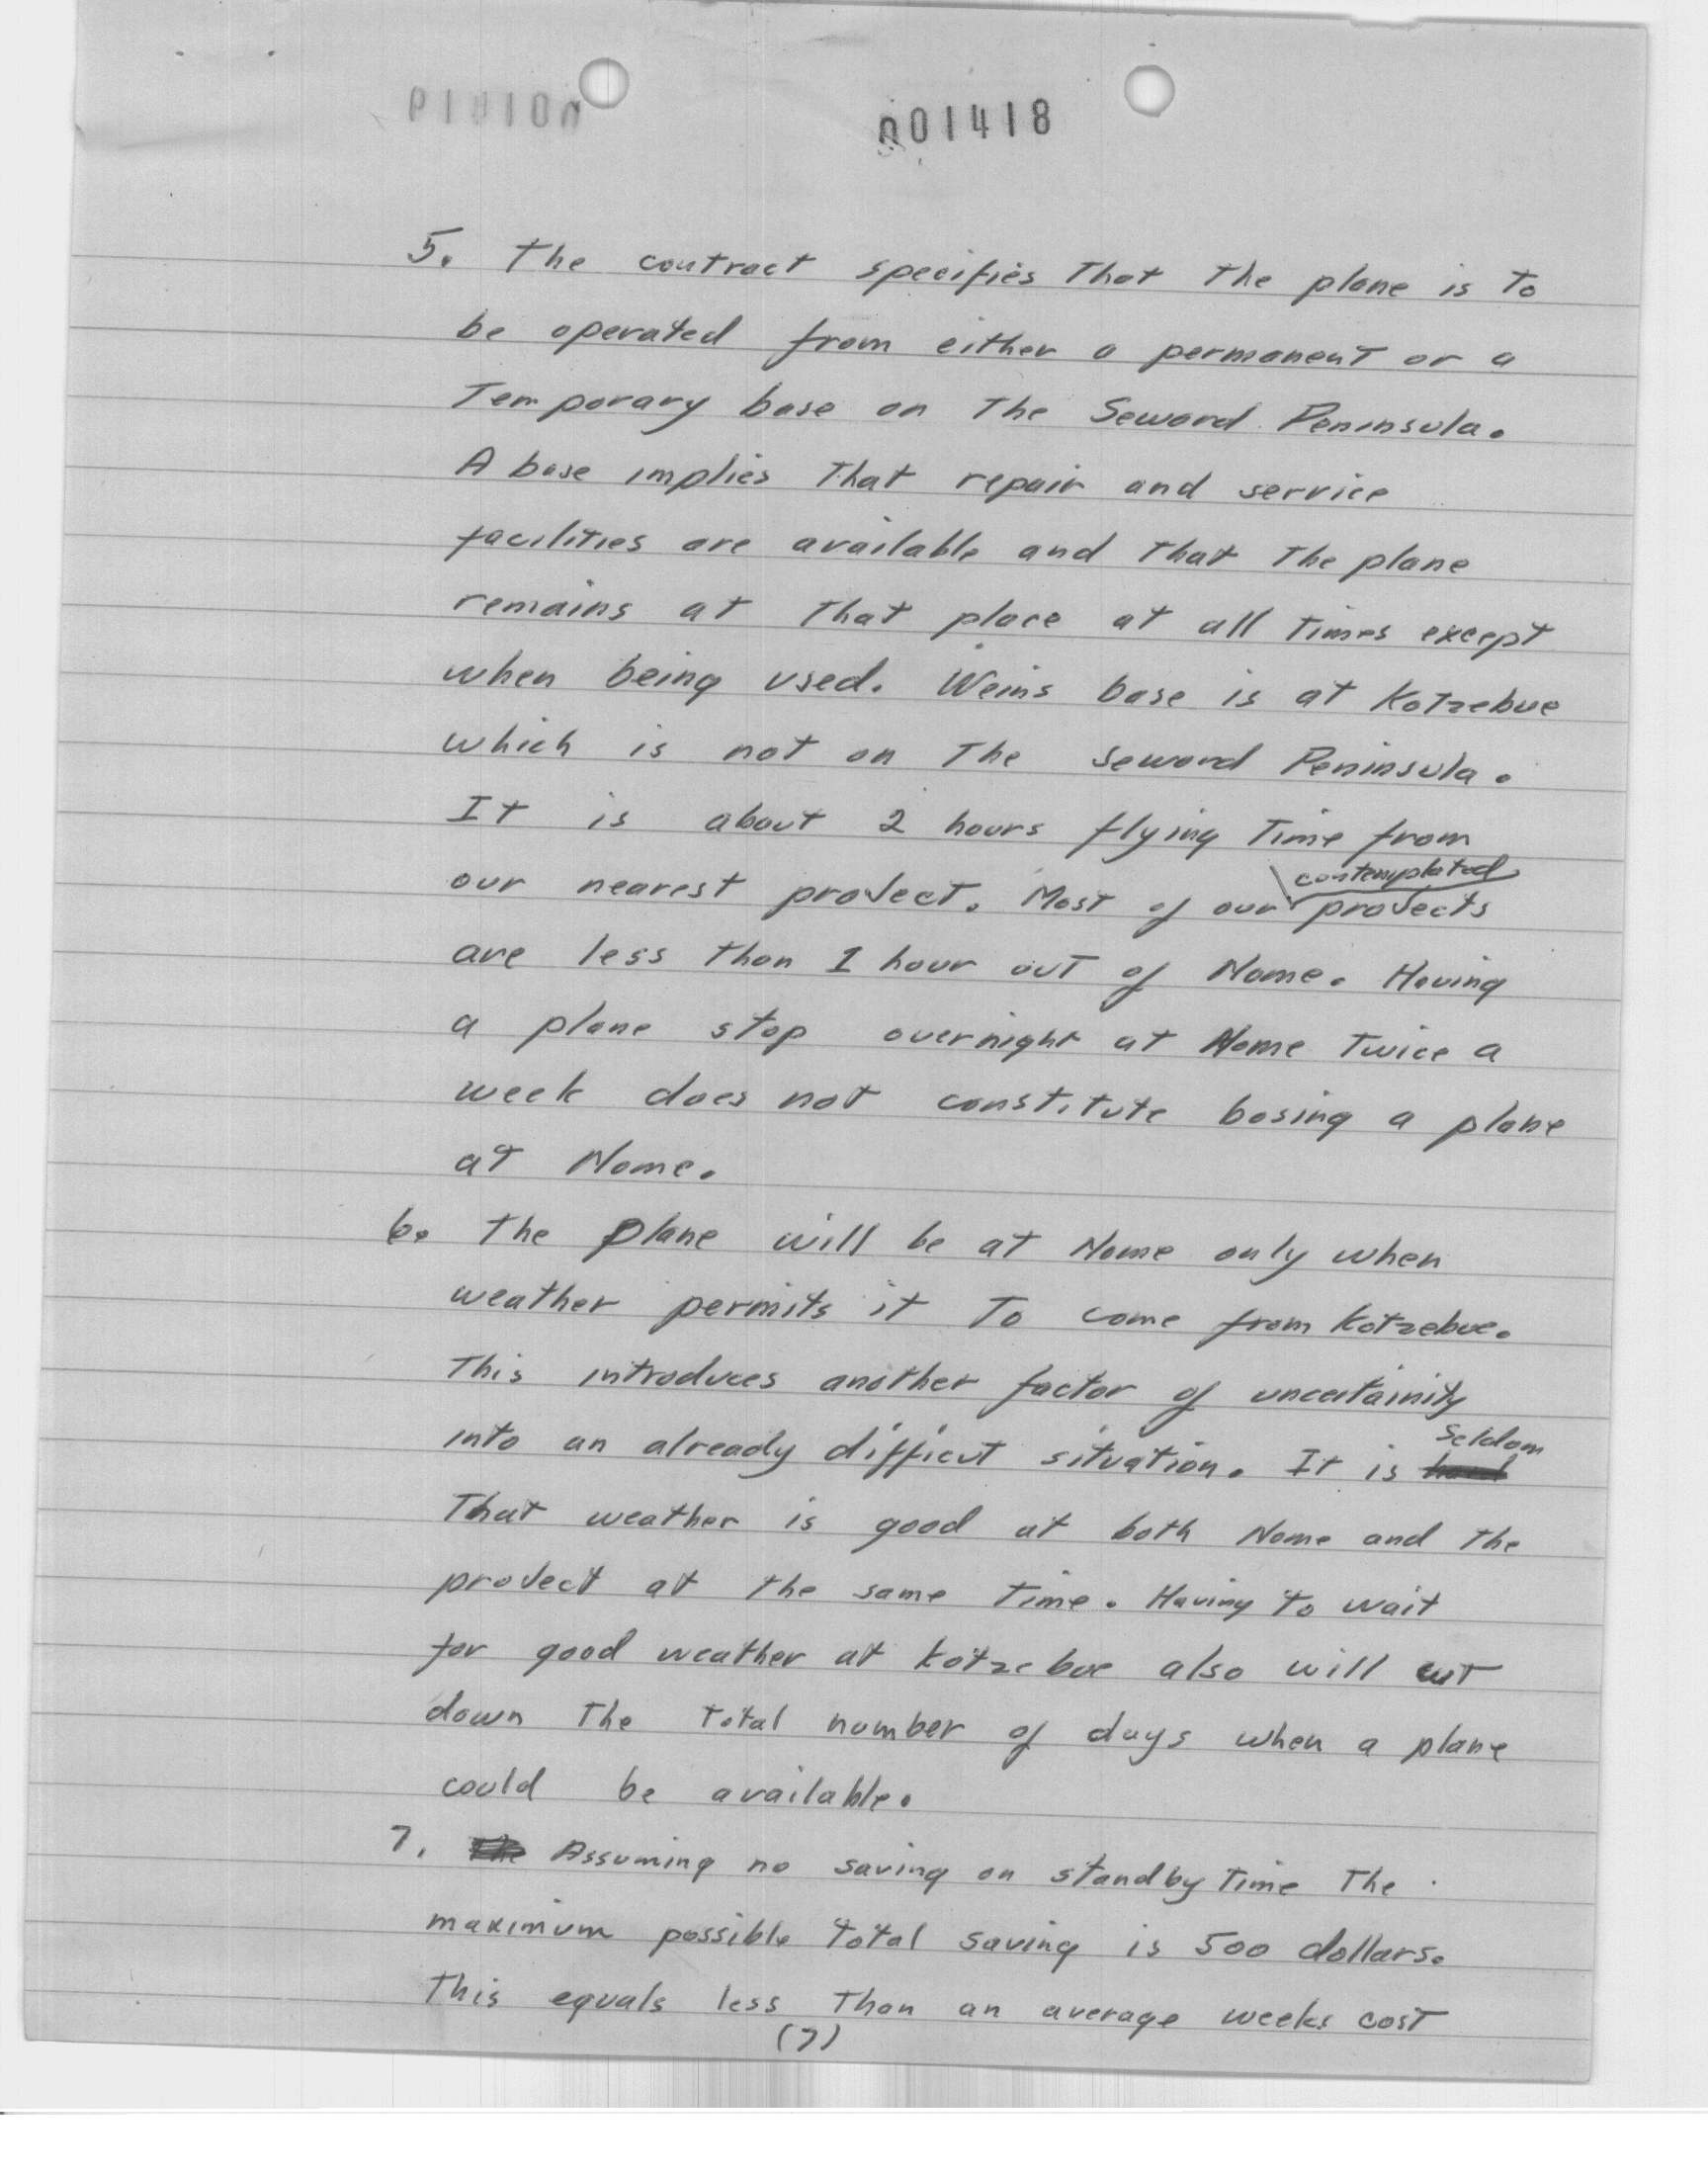 001418
5. The contract specifies that the plane is to
be operated from either a permanent or a
Temporary base on the Seward Peninsula.
A base implies that repair and service
facilities are available and that the plane
remains at that place at all times except
when being used. Weins base is at Kotzebue
which is not on the Seward Peninsula.
It is about 2 hours flying time from
our nearest project. Most of our contemplated projects
are less than 1 hour out of Nome. Having
a plane stop overnight at Nome twice a
week does not constitute basing a plane
at Nome.
6. The plane will be at Nome only when
weather permits it to come from Kotzebue.
This introduces another factor of uncertainity
into an already difficut situation. It is seldom
that weather is good at both Nome and the
project at the same time. Having to wait
for good weather at Kotzebue also will cut
down the total number of days when a plane
could be available.
7. The Assuming no saving on standby time the
maximum possible total saving is 500 dollars.
This equals less than an average weeks cost
(7)